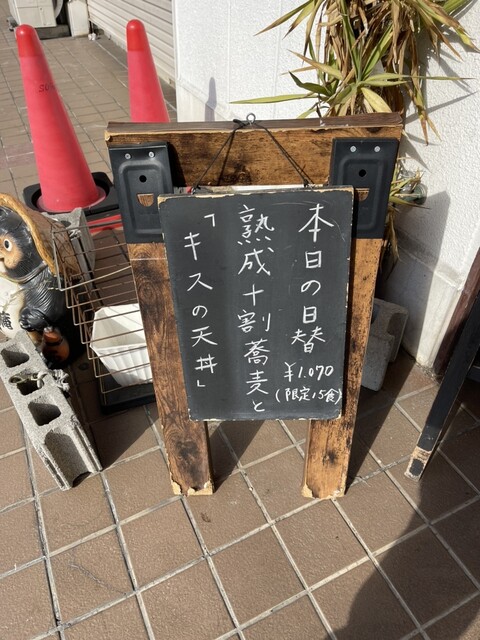 本日の日替
¥1.070
(限定15食)
熟成十割蕎麦と
「キスの天丼」